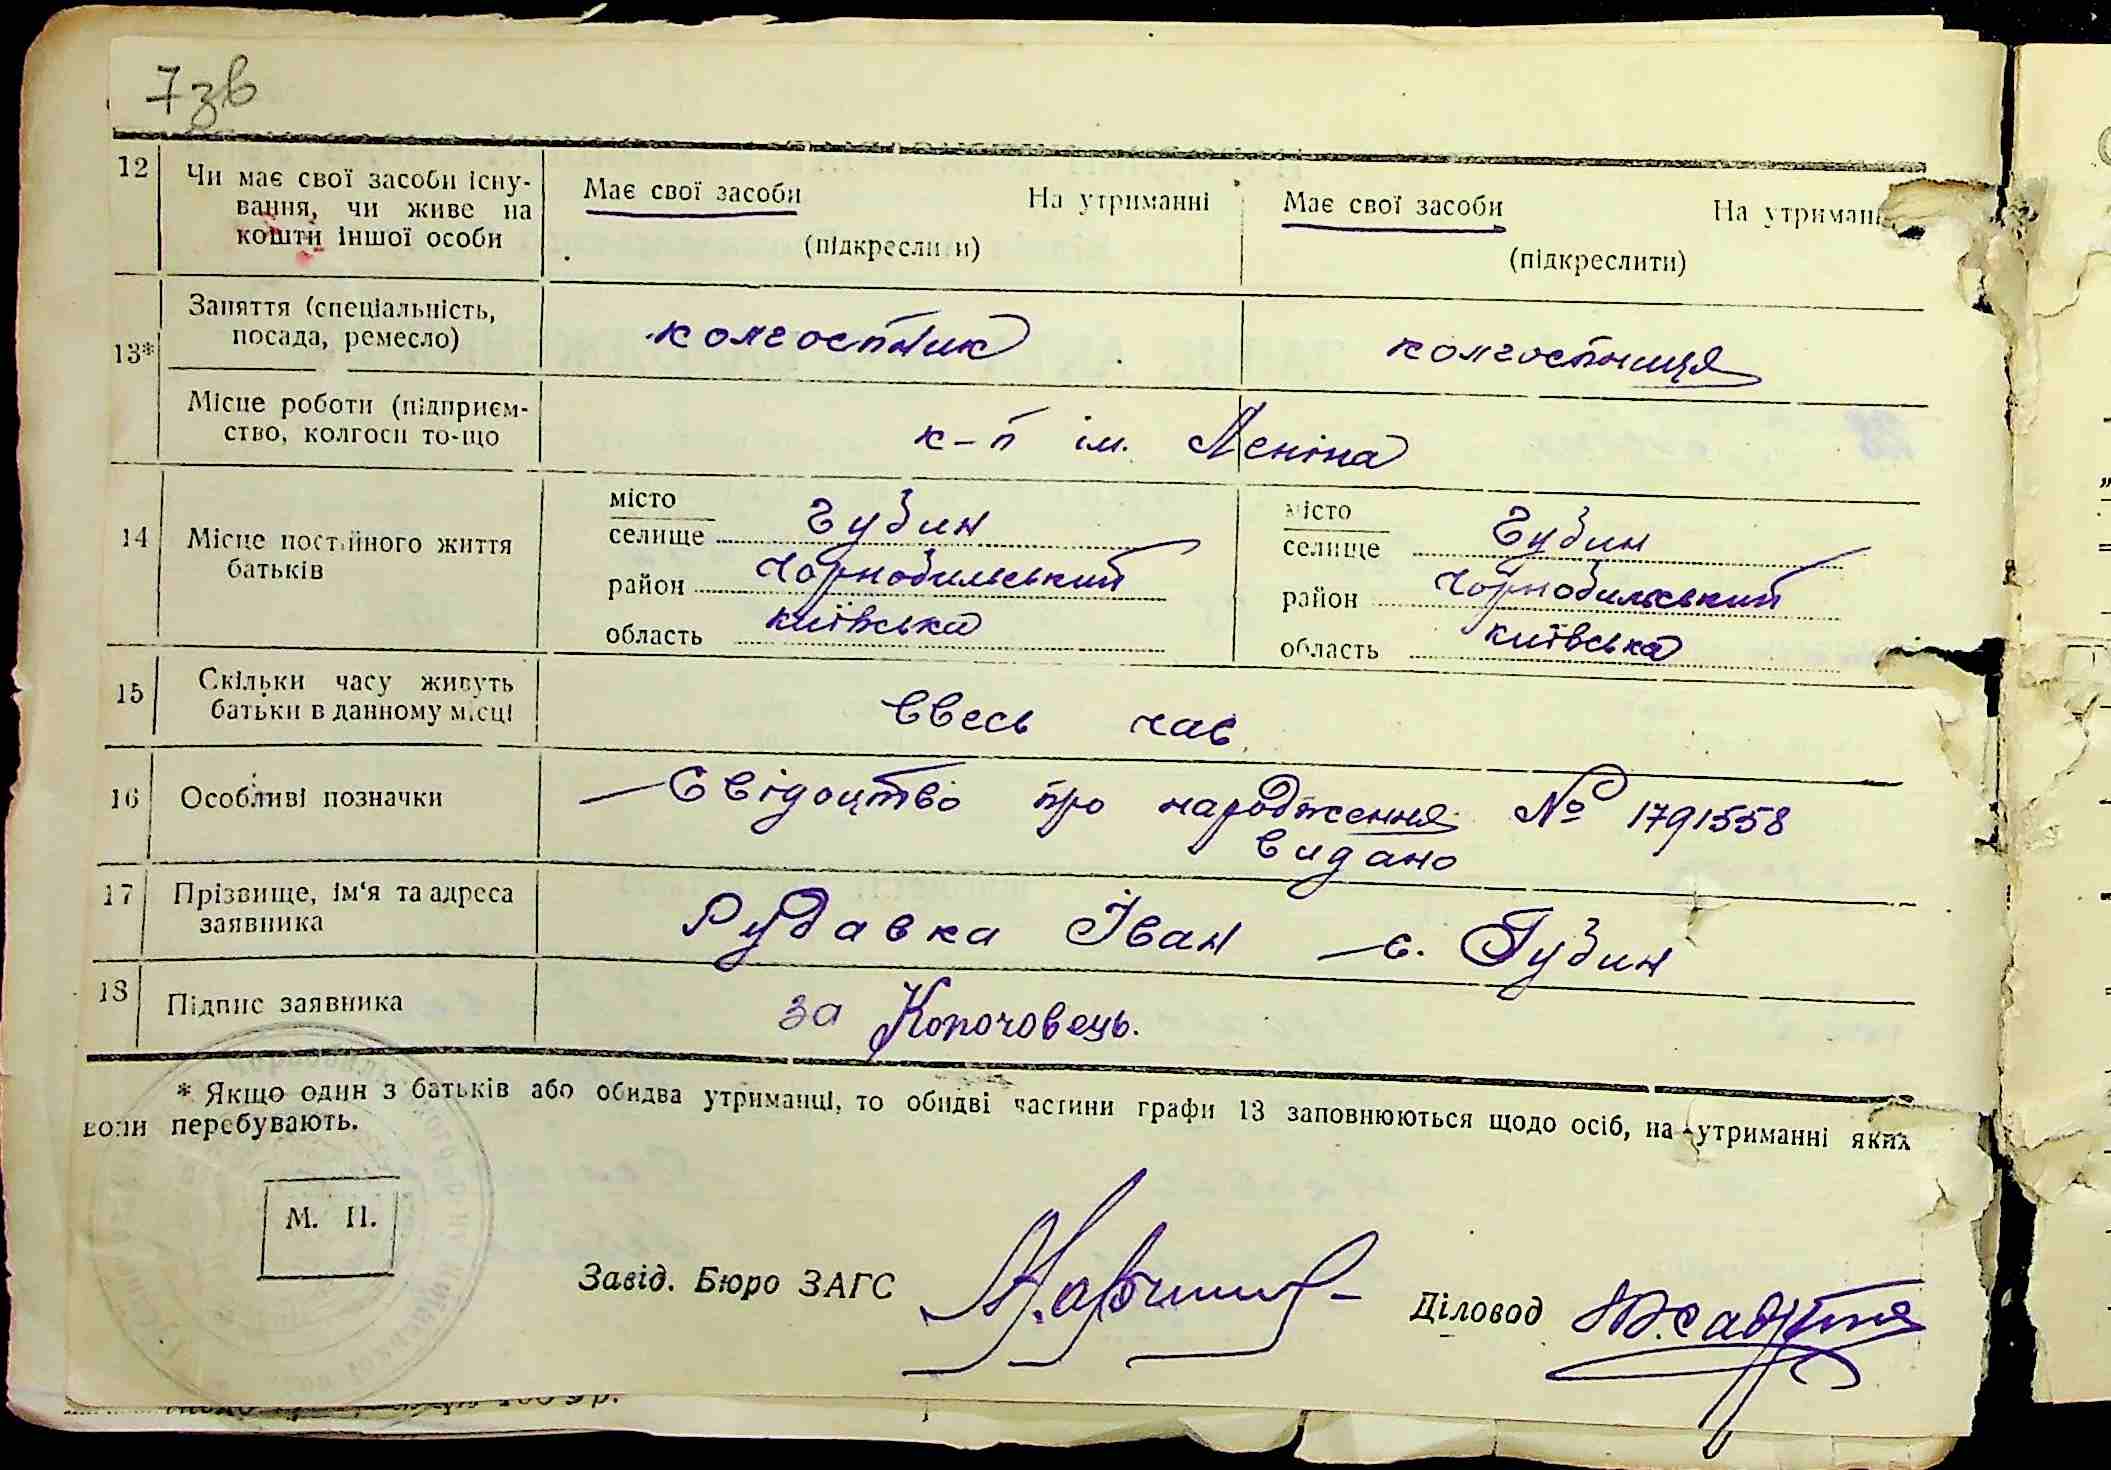 7зв
12 Чи має свої засоби існу-
вання, чи живе на
кошти іншої особи
Має свої засоби На утриманні
(підкреслити)
Має свої засоби На утриманн
(підкреслити)
13* Заняття (спеціальність,
посада, ремесло)
колгоспник колгоспниця
Місце роботи (підприєм-
ство, колгосп то-що
к-п ім. Леніна
14 Місце постійного життя
батьків
місто
селище Губин
район Чорнобильський
область київська
місто
селище Губин
район Чорнобильський
область київська
15 Скільки часу живуть
батьки в данному місці
ввесь час
16 Особливі позначки
Свідоцтво про народження № 1791558
видано
17 Прізвище, ім'я та адреса
заявника
Рудавка Іван – с. Губин
18 Підпис заявника
за Копочовець.
* Якщо один з батьків або обидва утриманці, то обидві частини графи 13 заповнюються щодо осіб, на утриманні яких
вони перебувають.
М. П.
Завід. Бюро ЗАГС
Діловод